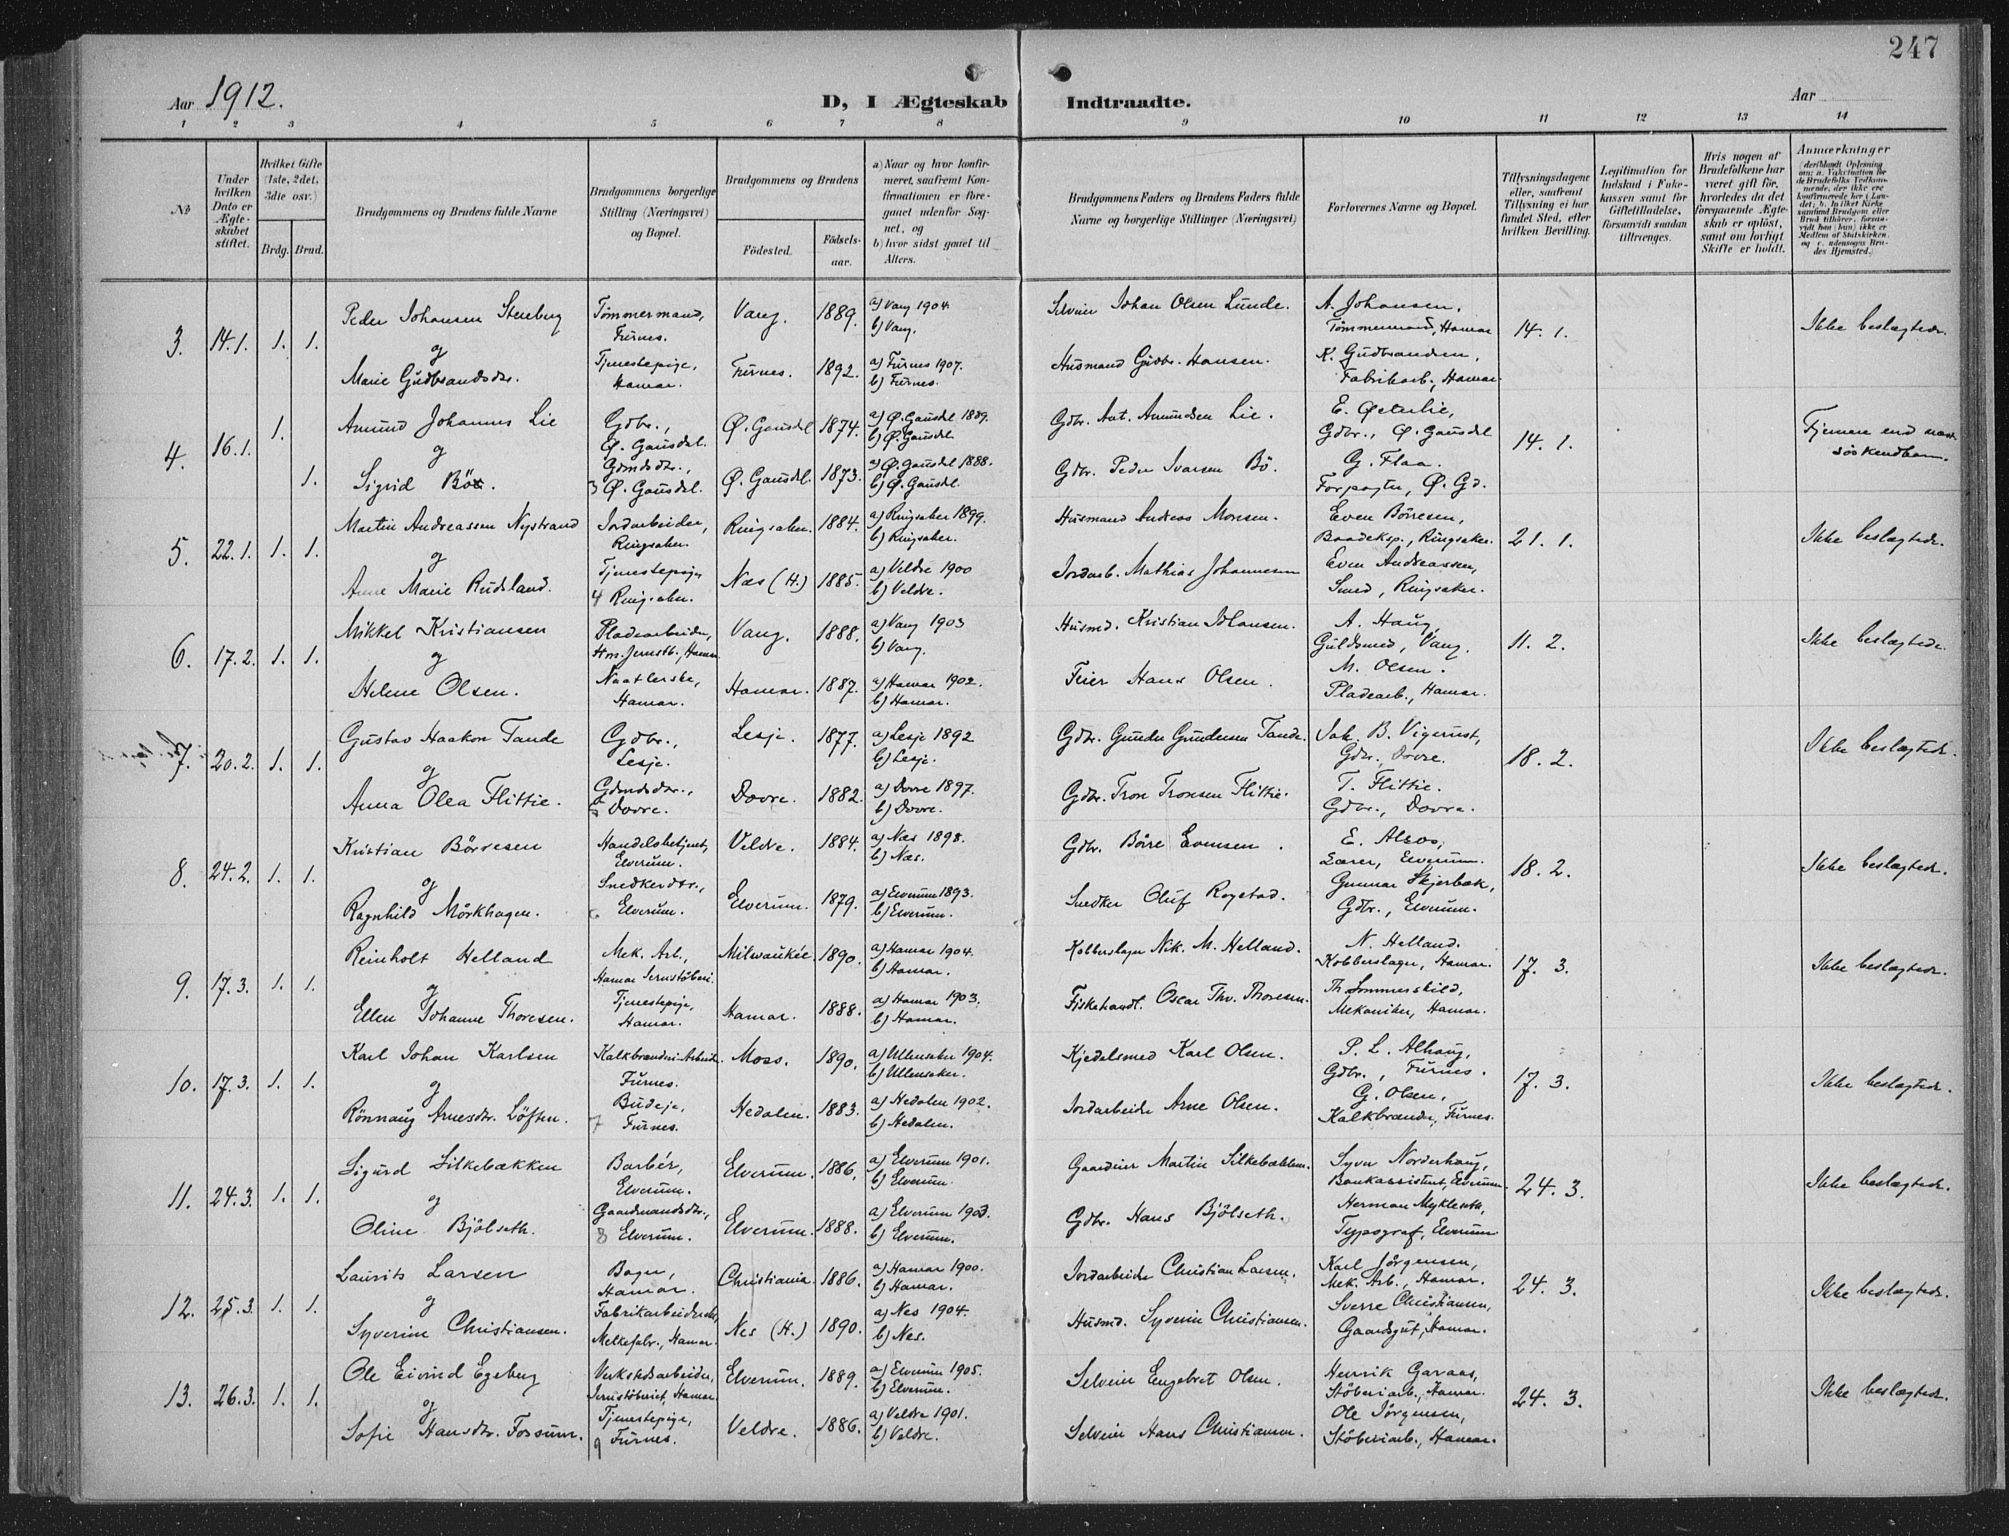 247
Aar 1912.
D, I Ægteskab Indtraadte.
Aar
1 2 3 4 5 6 7 8 9 10 11 12 13 14
No
Under hvilken Dato er Ægteskabet stiftet.
Hvilket Gifte (1ste, 2det, 3die osv.)
Brdg. Brud.
Brudgommens og Brudens fulde Navne
Brudgommens borgerlige Stilling (Næringsvei) og Bopæl.
Brudgommens og Brudens
Fødested.
Fødselsaar.
a) Naar og hvor konfirmeret, saafremt Konfirmationen er foregaaet udenfor Sognet, og
b) hvor sidst gaaet til Alters.
Brudgommens Faders og Brudens Faders fulde Navne og borgerlige Stillinger (Næringsvei)
Forlovernes Navne og Bopæl.
Tillysningsdagene eller, saafremt Tillysning ei har fundet Sted, efter hvilken Bevilling.
Legitimation for Indskud i Enkekassen samt for Giftetilladelse, forsaavidt saadan tiltrænges.
Hvis nogen af Brudefolkene har været gift før, hvorledes da det foregaaende Ægteskab er opløst, samt om lovligt Skifte er holdt.
Anmærkninger
3. 14.1. 1. 1.
Peder Johansen Stenberg Tømmermand, Furnes. Vang. 1889. a) Vang 1904 b) Vang. Selveier Johan Olsen Lunde. A. Johansen, Tømmermand, Hamar 14. 1. Ikke beslægtede.
og
Marie Gudbrandsdr. Tjenestepige, Hamar. Furnes. 1892. a) Furnes 1907. b) Furnes. Husmand Gudbr. Hansen. K. Gudbrandsen, Fabrikarb., Hamar.
4. 16.1. 1. 1.
Amund Johannes Lie Gdbr., Ø. Gausdal. Ø. Gausdal 1874. a) Ø. Gausdal 1889. b) Ø. Gausdal Gdbr. Ant. Amundsen Lie. E. Østerlie, Gdbr., Ø. Gausdal 14. 1. Fjernere end næstsøskendbarn.
og
Sigrid Bø. Gdmdsdtr., 3 Ø. Gausdal. Ø. Gausdal. 1873. a) Ø. Gausdal 1888. b) Ø. Gausdal. Gdbr. Peder Ivarsen Bø. G. Flaa. Forpagter, Ø. Gd.
5. 22.1. 1. 1.
Martin Andreassen Nystrand Jordarbeider, Ringsaker. Ringsaker. 1884. a) Ringsaker 1899. b) Ringsaker. Husmand Andreas Monsen. Even Børresen, Baadeksp., Ringsaker. 21. 1. Ikke beslægtede.
og
Anne Marie Rudsland. Tjenestepige 4 Ringsaker. Næs (H.) 1885. a) Veldre 1900 b) Veldre. Jordarb. Mathias Johannesen Even Andreassen, Smed, Ringsaker.
6. 17.2. 1. 1.
Mikkel Kristiansen Pladearbeider, Hm. Jernstb., Hamar Vang. 1888. a) Vang 1903 b) Vang. Husmd. Kristian Johansen. A. Haug, Guldsmed, Vang. 11. 2. Ikke beslægtede.
og
Helene Olsen. Naatlerske, Hamar. Hamar. 1887. a) Hamar 1902. b) Hamar. Feier Hans Olsen. M. Olsen. Pladearb., Hamar.
7. 20.2. 1. 1.
Gustav Haakon Tande Gdbr., Lesje. Lesje. 1877. a) Lesje 1892 b) Lesje. Gdbr. Gunder Gundersen Tande. Jak. B. Vigerust, Gdbr., Dovre. 18. 2. Ikke beslægtede.
og
Anna Olea Flittie. Gdmdsdtr., Dovre. Dovre. 1882. a) Dovre 1897. b) Dovre. Gdbr. Tron Tronsen Flittie. T. Flittie. Gdbr., Dovre.
8. 24.2. 1. 1.
Kristian Børresen Handelsbetjent, Elverum. Veldre. 1884. a) Næs 1898. b) Næs. Gdbr. Børre Evensen. E. Alsos, Lærer, Elverum. 18. 2. Ikke beslægtede.
og
Ragnhild Mörkhagen. Snedkerdtr., 6 Elverum. Elverum. 1879. a) Elverum 1893. b) Elverum. Snedker Oluf Rogstad. Gunnar Skjerbæk, Gdbr., Elverum.
9. 17.3. 1. 1.
Reinholt Helland Mek. Arb., Hamar Jernstøberi. Milwaukée. 1890. a) Hamar 1904. b) Hamar. Kobberslager Nik. M. Helland. N. Helland. Kobberslager, Hamar. 17. 3. Ikke beslægtede.
og
Ellen Johanne Thoresen. Tjenestepige, Hamar. Hamar. 1888. a) Hamar 1903. b) Hamar. Fiskehandl. Oscar Thv. Thoresen. Th. Sommerskild, Mekaniker, Hamar.
10. 17.3. 1. 1.
Karl Johan Karlsen Kalkbrænderi-Arbeider Furnes. Moss. 1890. a) Ullensaker 1904. b) Ullensaker. Kjedelsmed Karl Olsen. P. L. Alhaug, Gdbr., Furnes. 17. 3. Ikke beslægtede.
og
Rönnaug Arnesdtr. Löften. Budeje, 7 Furnes. Hedalen. 1883. a) Hedalen 1902. b) Hedalen. Jordarbeider Arne Olsen. G. Olsen, Kalkbrænder, Furnes.
11. 24.3. 1. 1.
Sigurd Silkebækken Barbér, Elverum. Elverum. 1886. a) Elverum 1901. b) Elverum. Gaardeier Martin Silkebækken. Syver Norderhaug, Bankassistent, Elverum 24. 3. Ikke beslægtede.
og
Oline Bjölseth. Gaardmandsdtr., 8 Elverum. Elverum. 1888. a) Elverum 1903. b) Elverum. Gdbr. Hans Bjölseth. Herman Mykleseth, Typograf, Elverum
12. 25.3. 1. 1.
Laurits Larsen Bager, Hamar. Christiania. 1886. a) Hamar 1900. b) Hamar. Jordarbeider Christian Larsen. Karl Jörgensen, Mek. Arb., Hamar. 24. 3. Ikke beslægtede.
og
Syverine Christiansen. Fabrikarbeiderske, Melkefabr., Hamar. Nes (H.) 1890. a) Nes 1904. b) Nes. Husmd. Syverin Christiansen. Sverre Christiansen, Gaardsgut, Hamar.
13. 26.3. 1. 1.
Ole Eivind Egeberg Verkstedarbeider, Jernstöberiet, Hamar. Elverum. 1889. a) Elverum 1905. b) Elverum. Selveier Engebret Olsen. Henrik Garaas, Stöberiarb., Hamar. 24. 3. Ikke beslægtede.
og
Sofie Hansdtr. Fossum. Tjenestepige, 9 Furnes. Veldre. 1886. a) Veldre 1901. b) Veldre. Selveier Hans Christiansen. Ole Jörgensen, Stöberiarb., Hamar.